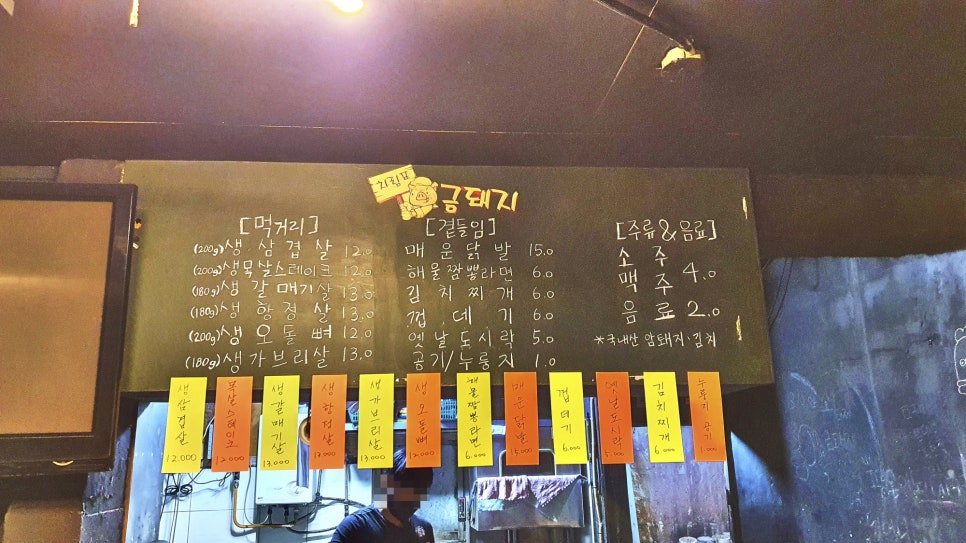 치림표
금돼지
[먹거리]
(200g)생 삼 겹 살 12.0
(200g)생목살스테이크 12.0
(180g)생 갈 매기 살 13.0
(180g)생 항 정 살 13.0
(200g)생 오 돌 뼈 12.0
(180g)생가브리살 13.0
[곁들임]
매 운 닭 발 15.0
해물짬뽕라면 6.0
김 치 찌 개 6.0
껍 데 기 6.0
옛날도시락 5.0
공기/누룽지 1.0
[주류&음료]
소 주
맥 주 4.0
음 료 2.0
*국내산 암돼지·김치
생삼겹살 12.000
목살스테이크 12.000
생갈매기살 13.000
생항정살 13.000
생가브리살 13.000
생오돌뼈 12.000
해물짬뽕라면 6.000
매운닭발 15.000
껍데기 6.000
옛날도시락 5.000
김치찌개 6.000
누룽지 공기 1.000